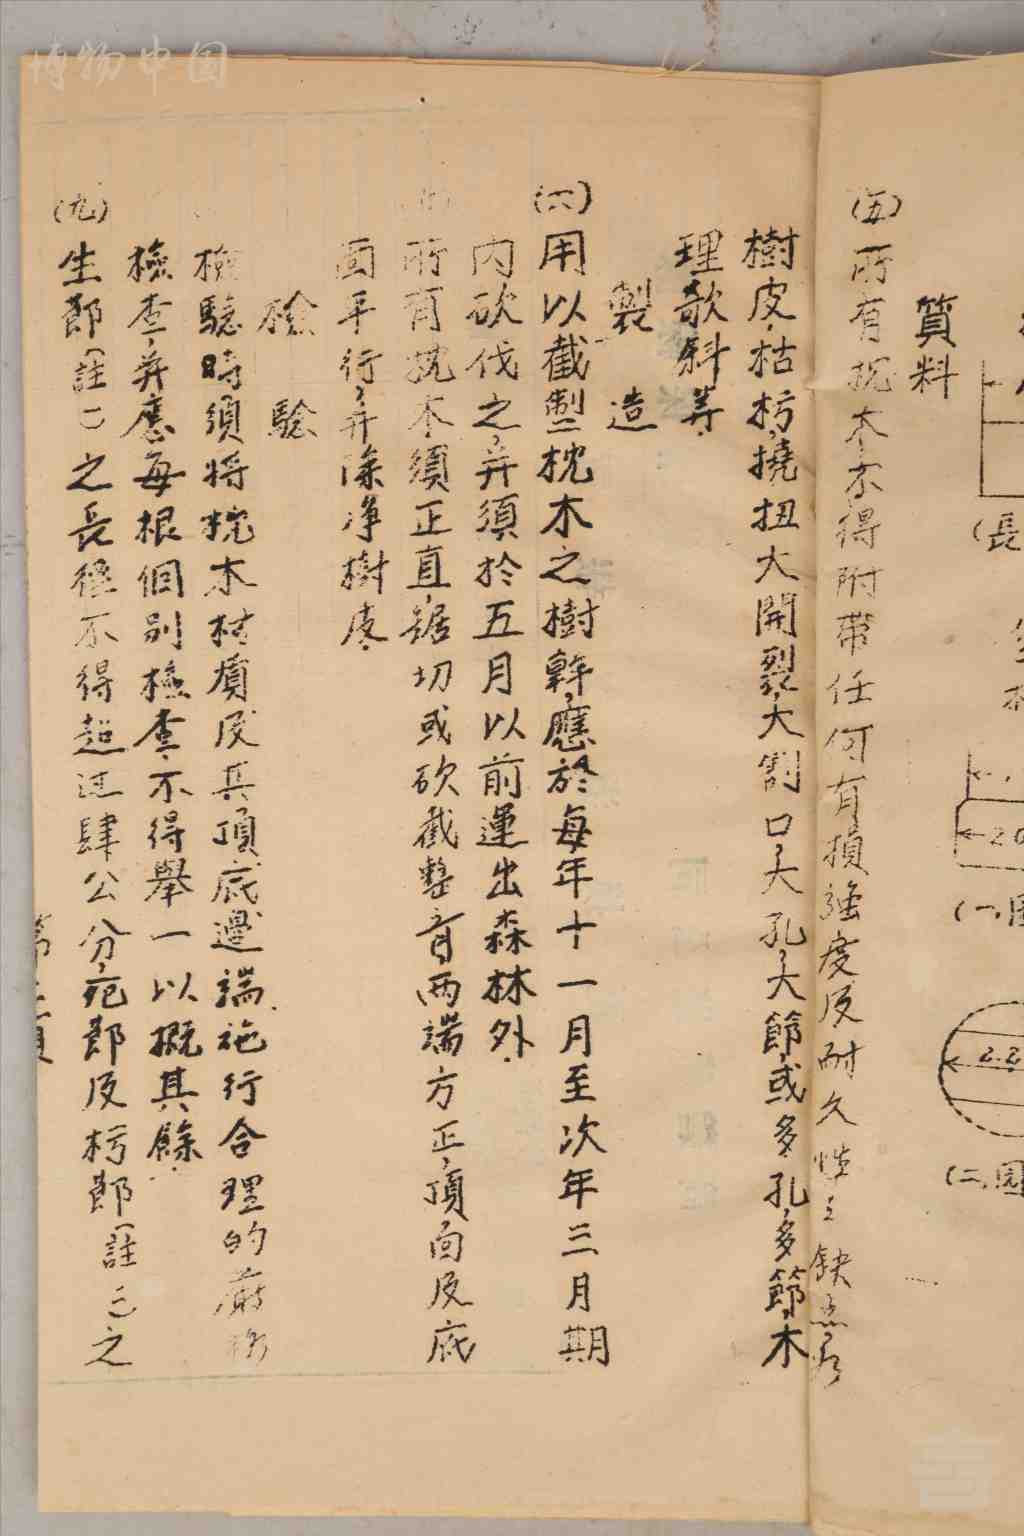 質料
(五)所有枕木不得附帶任何有損強度及耐久性之缺点如
樹皮,枯朽,撓扭大開裂,大割口,大孔,大節,或多孔,多節,木
理欹斜等.
製造
(六)用以截製枕木之樹幹,應於每年十一月至次年三月期
內砍伐之,并須於五月以前運出森林外.
所有枕木須正直,鋸切或砍截整齊两端方正,頂面及底
面平行,并除净樹皮.
檢驗
檢驗時須將枕木枯墳及其頂底邊端施行合理的嚴格
檢查,并應每根個別檢查.不得舉一以概其餘.
(九)生節(註一)之長徑不得超过肆公分,疤節及朽節(註二)之
第二頁
(長
(一)圓
(二)圓
2.0
2.2
博物中国